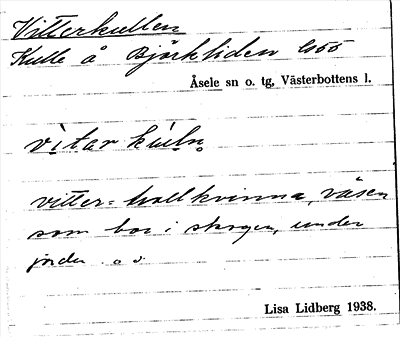 Vitterkullen
Kulle å Björkliden
Åsele sn o. tg, Västerbottens l.
vìtar kùln
vitter = trollkvinna, väsen
som bor i skogen, under
jorden o. s.
Lisa Lidberg 1938.